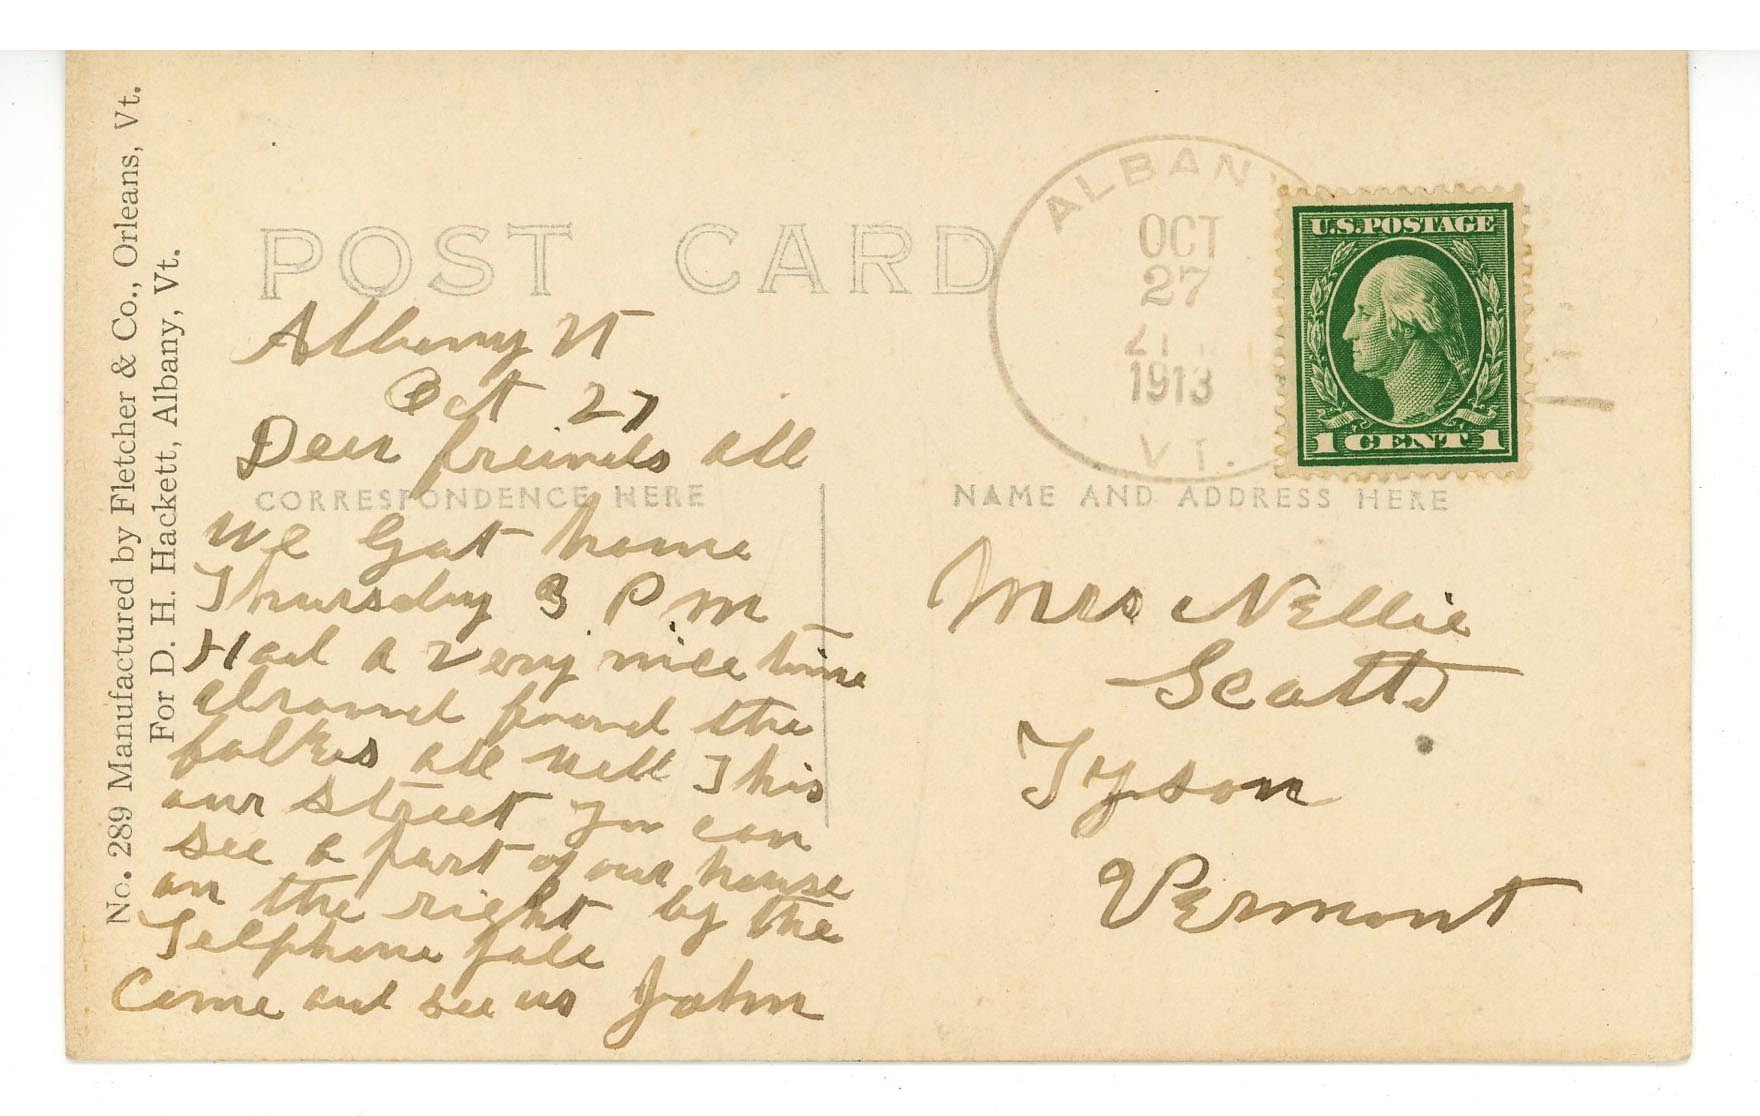 No. 289 Manufactured by Fletcher & Co., Orleans, Vt.
For D. H. Hackett, Albany, Vt.
POST CARD
ALBANY
OCT
27
1913
VT.
U.S. POSTAGE
1 CENT 1
Albany Vt
Oct 27
Dear freinds all
CORRESPONDENCE HERE
We Got home
Thursday 3 P m
Had a very nice time
abround found the
folkes all well This
our street you can
see a part of our house
on the right by the
Telphone pole
Come and see us John
NAME AND ADDRESS HERE
Mrs Nellie
Scott
Tyson
Vermont